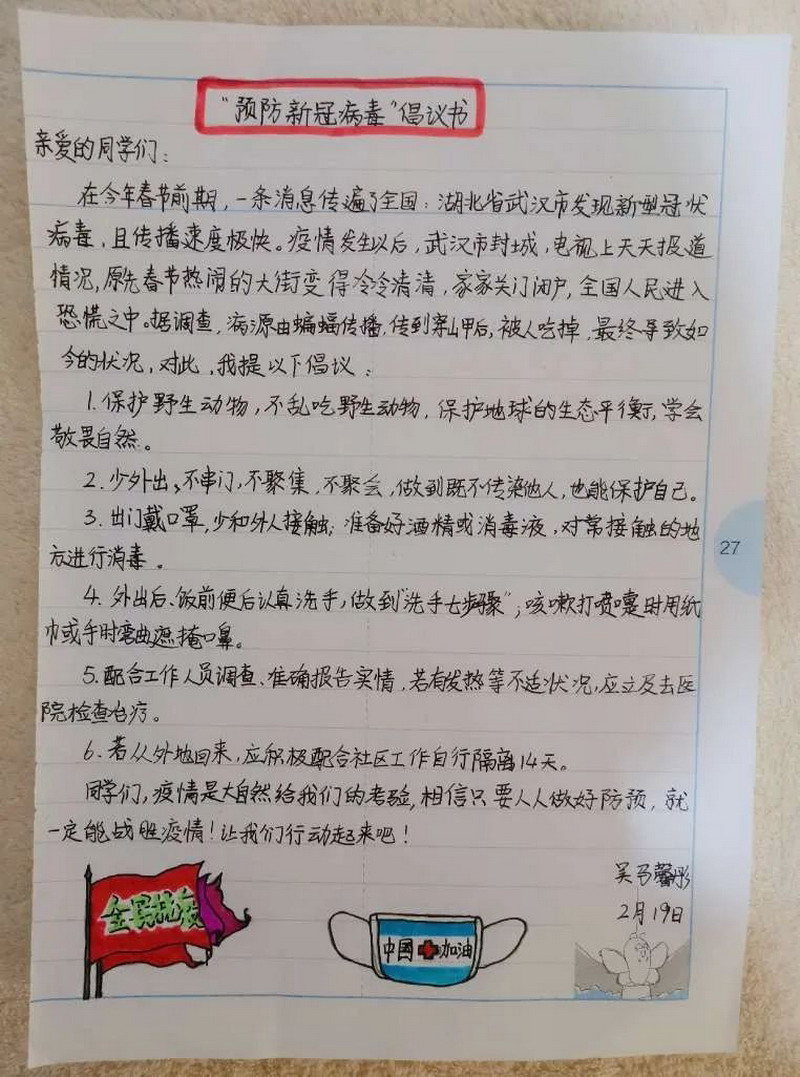 “预防新冠病毒”倡议书
亲爱的同学们：
在今年春节前期，一条消息传遍了全国：湖北省武汉市发现新型冠状
病毒，且传播速度极快。疫情发生以后，武汉市封城，电视上天天报道
情况，原先春节热闹的大街变得冷冷清清，家家关门闭户，全国人民进入
恐慌之中。据调查，病源由蝙蝠传播，传到穿山甲后，被人吃掉，最终导致如
今的状况，对此，我提以下倡议：
1.保护野生动物，不乱吃野生动物，保护地球的生态平衡，学会
敬畏自然。
2.少外出、不串门，不聚集，不聚会，做到既不传染他人，也能保护自己。
3.出门戴口罩，少和外人接触；准备好酒精或消毒液，对常接触的地
方进行消毒。
4.外出后、饭前便后认真洗手，做到“洗手七步骤”；咳嗽打喷嚏时用纸
巾或手肘弯曲遮掩口鼻。
5.配合工作人员调查、准确报告实情，若有发热等不适状况，应立及去医
院检查治疗。
6.若从外地回来，应积极配合社区工作自行隔离14天。
同学们，疫情是大自然给我们的考验，相信只要人人做好防预，就
一定能战胜疫情！让我们行动起来吧！
吴馨彤
2月19日
全民抗疫
中國加油
27